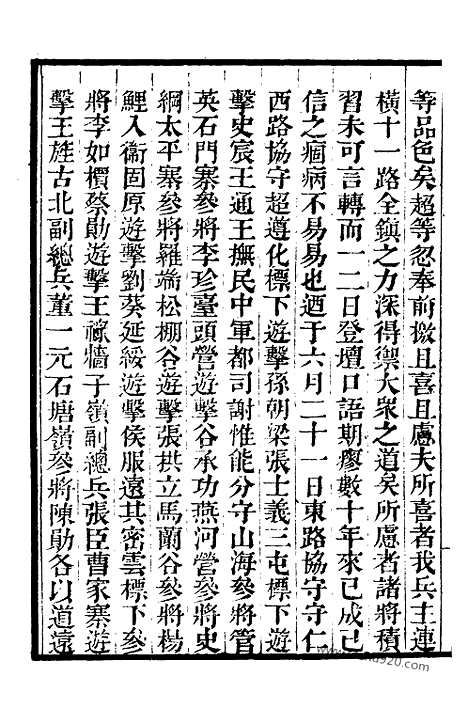 等品色矣超等忽奉前檄且喜且慮夫所喜者我兵主連
橫十一路全鎮之力深得禦大衆之道矣所慮者諸將積
習未可言轉而一二日登壇口語期瘳數十年來已成已
信之痼病不易易也迺于六月二十一日東路協守守仁
西路協守超遵化標下遊擊孫朝梁張士義三屯標下遊
擊史宸王通王撫民中軍都司謝惟能分守山海參將管
英石門寨參將李珍臺頭營遊擊谷承功燕河營參將史
綱太平寨參將羅端松棚谷遊擊張拱立馬蘭谷參將楊
鯉入衞固原遊擊劉葵延綏遊擊侯服遠其密雲標下參
將李如檟蔡勛遊擊王祿牆子嶺副總兵張臣曹家寨遊
擊王旌古北副總兵董一元石塘嶺參將陳勛各以道遠